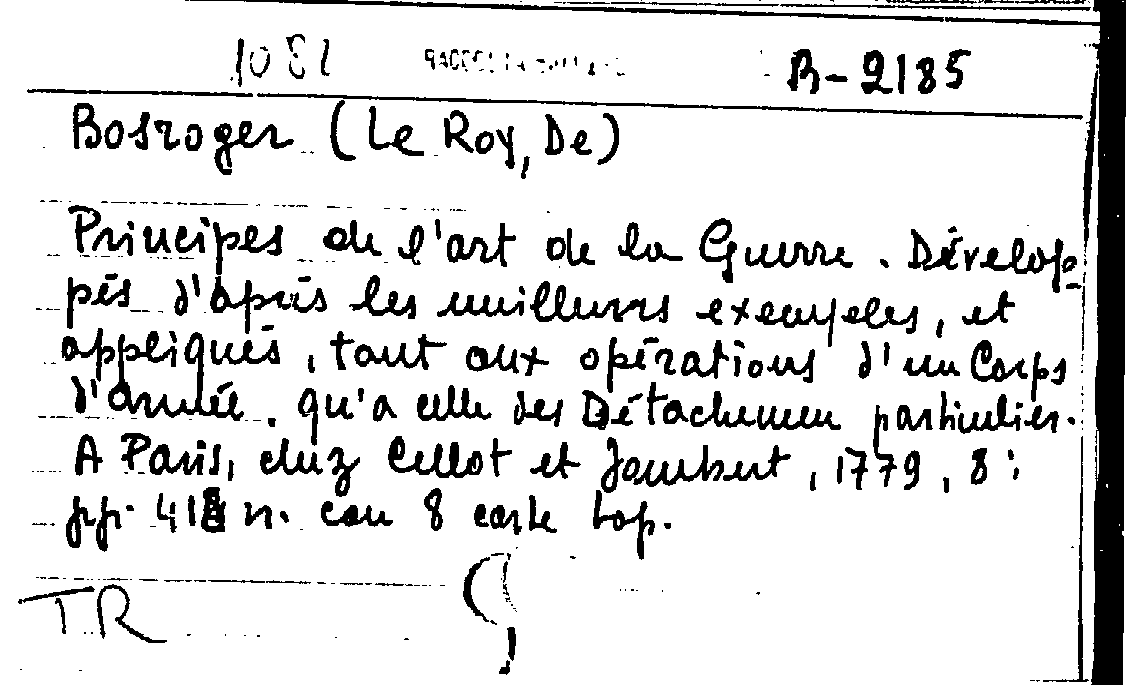 1081 B-2185
Bosroger (Le Roy, De)
Principes de l'art de la Guerre. Dévelop-
pés d'après les meilleurs exemples, et
appliqués, tant aux opérations d'un Corps
d'armée, qu'a celle des Détachemen particulier.
A Paris, chez Cellot et Jombert, 1779, 8:
pp. 418 n. con 8 carte top.
TR